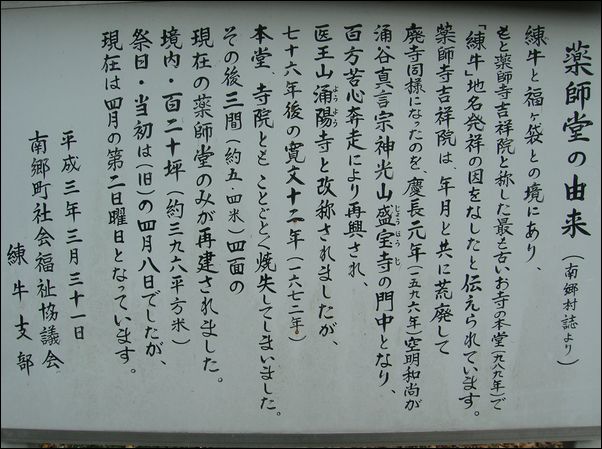 薬師堂の由来(南郷村誌より)
練牛と福ヶ袋との境にあり、
もと薬師寺吉祥院と称した最も古いお寺の本堂(九八九年)で
「練牛」地名発祥の因をなしたと伝えられています。
薬師寺吉祥院は、年月と共に荒廃して
廃寺同様になったのを、慶長元年(一五九六年)空明和尚が
涌谷真言宗神光山盛宝寺の門中となり、
じょうほうじ
百方苦心奔走により再興され、
医王山涌陽寺と改称されましたが、
ようよう
七十六年後の寛文十二年(一六七二年)
本堂、寺院ともことごとく焼失してしまいました。
その後三間(約五・四米)四面の
現在の薬師堂のみが再建されました。
境内・百二十坪(約三九六平方米)
祭日・当初は(旧)の四月八日でしたが、
現在は四月の第二日曜日となっています。
平成三年三月三十一日
南郷町社会福祉協議会
練牛支部